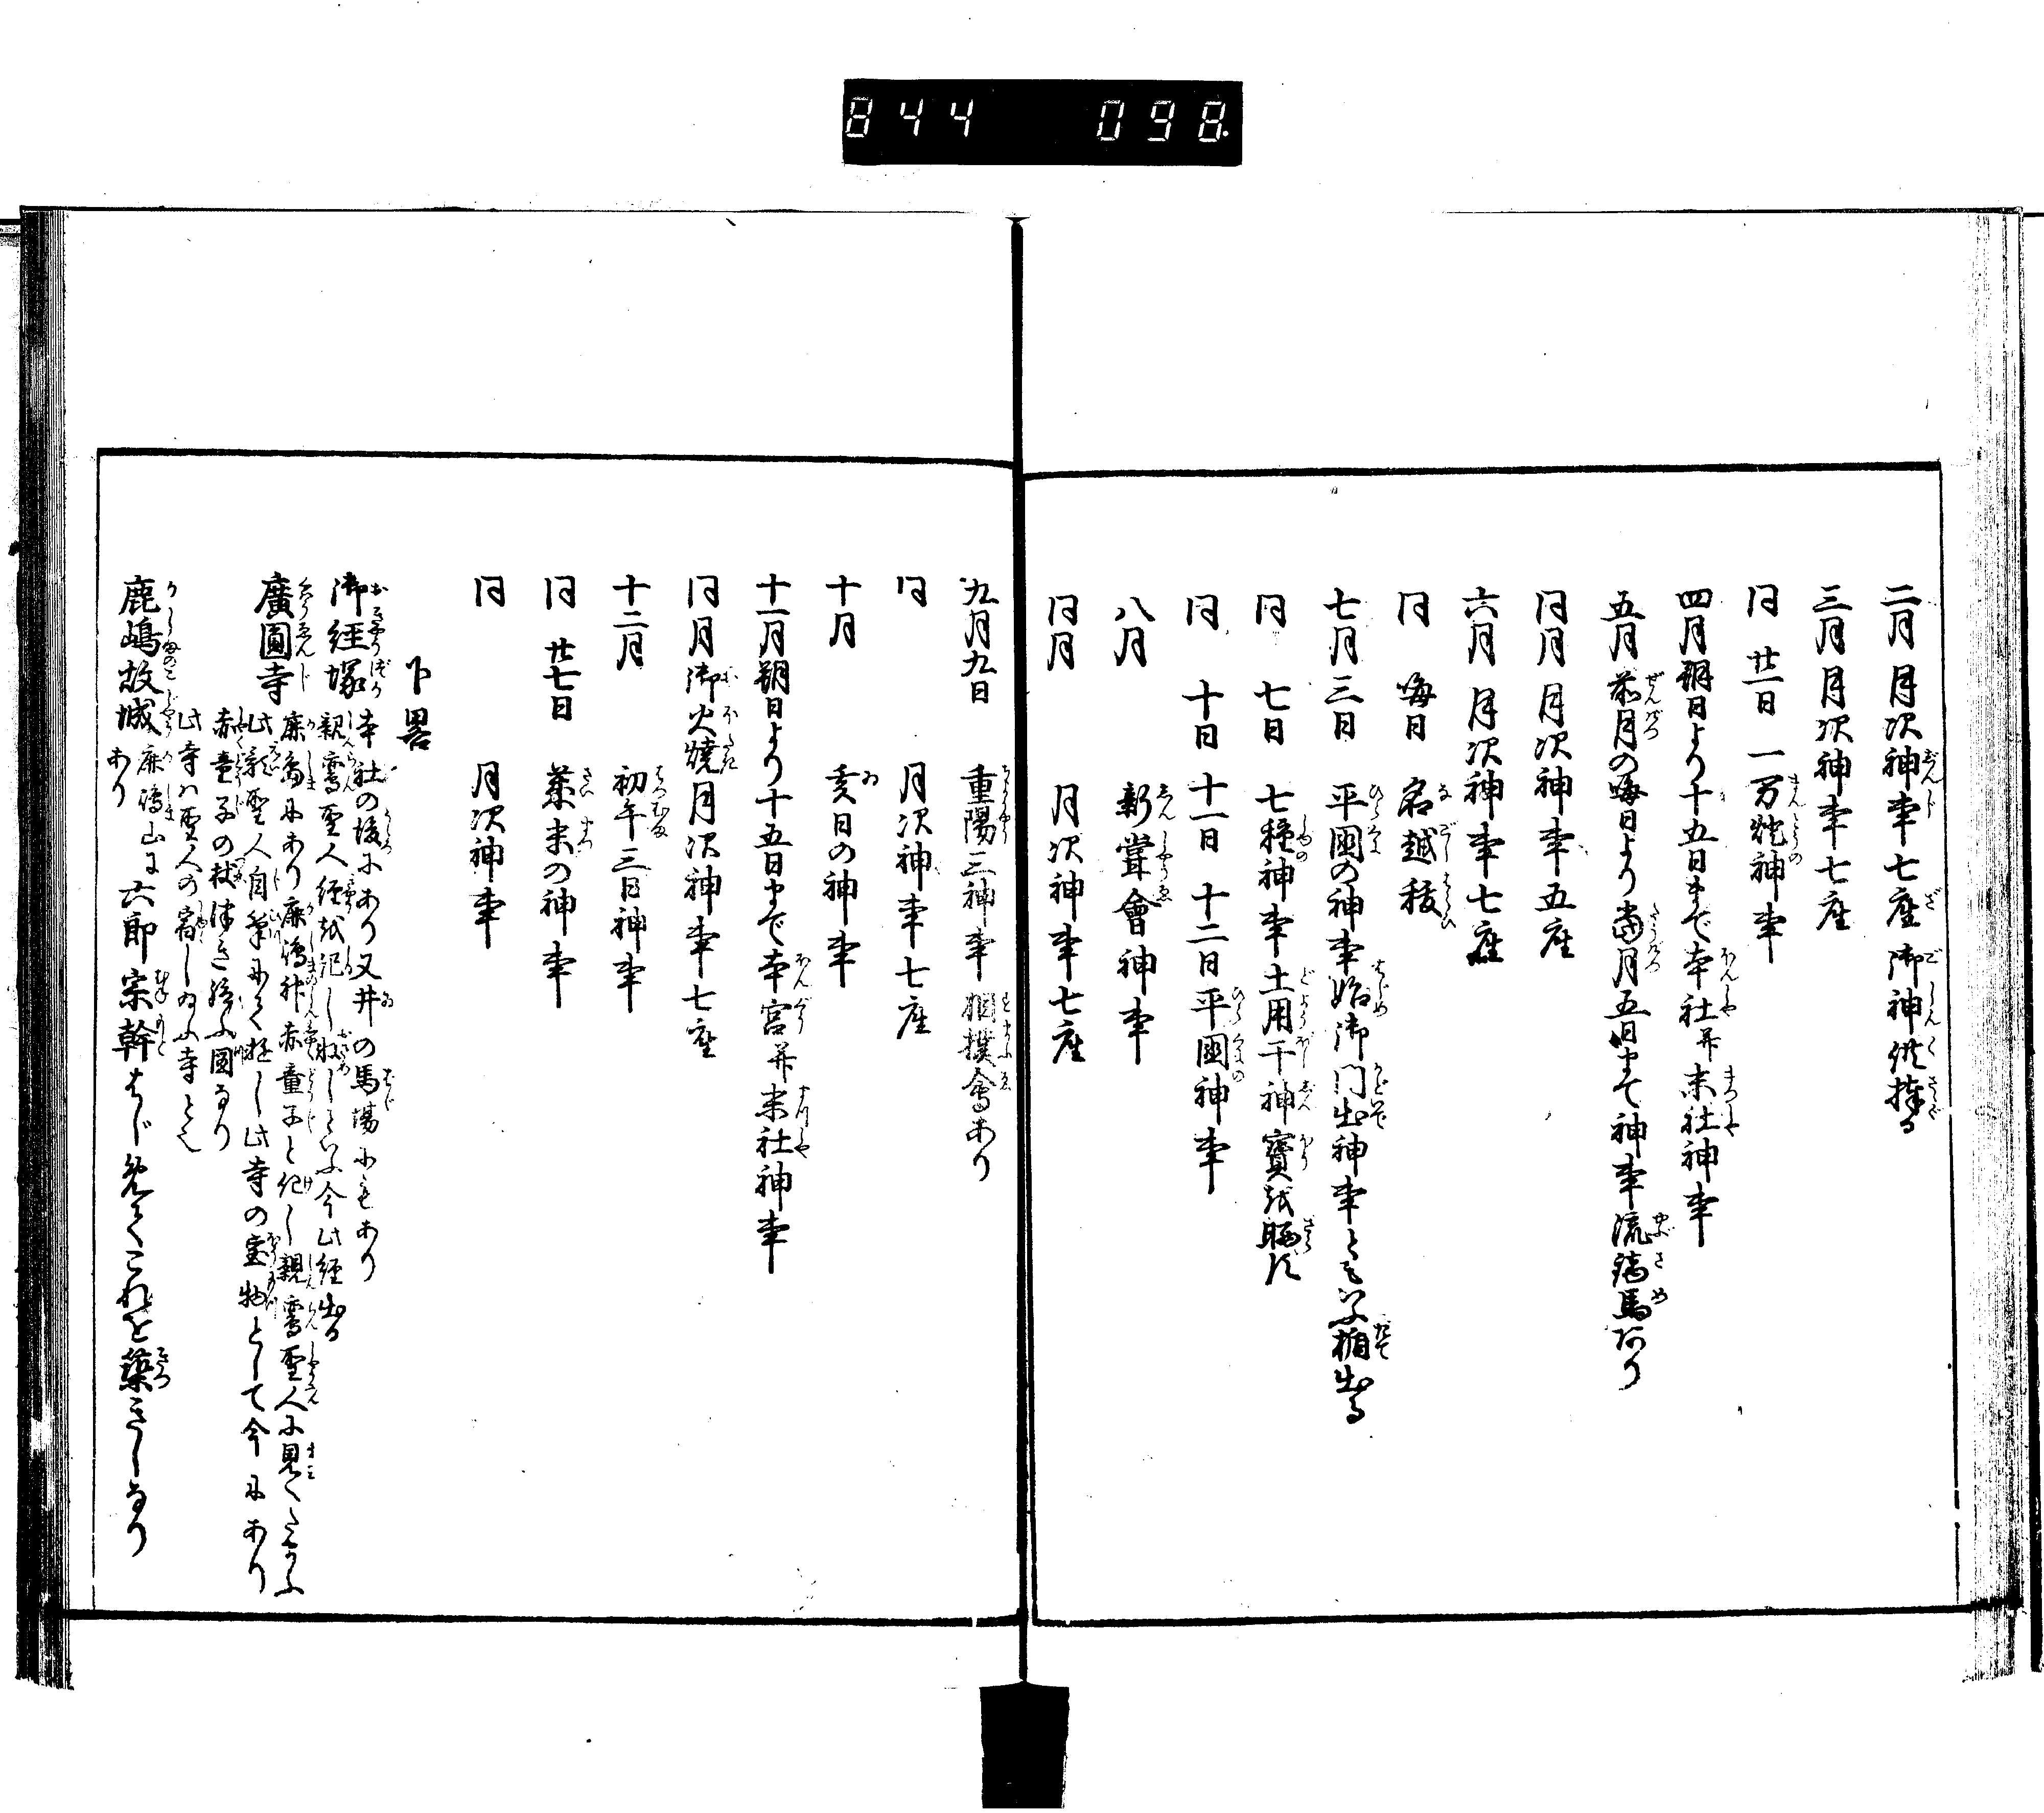 844 098
二月 月次神事七座 御神供捧る
三月 月次神事七座
同 廿一日 一万灯神事
四月 朔日より十五日まで本社并末社神事
五月 前月の晦日より当月五日まで神事流鏑馬あり
同月 月次神事五座
六月 月次神事七座
同 晦日 名越秡
七月三日 平國の神事始御門出神事ともいふ楯出る
同 七日 七種神事土用干神寶を晒す
同 十日 十一日 十二日平國神事
八月 新甞會神事
同月 月次神事七座
九月九日 重陽三神事 相撲會あり
同 月次神事七座
十月 亥日の神事
十一月朔日より十五日まで本宮并末社神事
同月御火燒月次神事七座
十二月 初午三日神事
同 廿七日 歳末の神事
同 月次神事
下畧
御経塚 本社の後にあり又井の馬場にもあり
親鸞聖人経を記し といふ今此経出る
廣圓寺 鹿嶋にあり鹿嶋神赤童子と化し親鸞聖人に見えたまふ
此 聖人自筆にて 此寺の宝物として今にあり
赤童子の杖つき給ふ圖なり
此寺は聖人の宿し給ふ寺とぞ
鹿嶋故城 鹿嶋山に六郎宗幹はじめてこれを築きしなり
あり